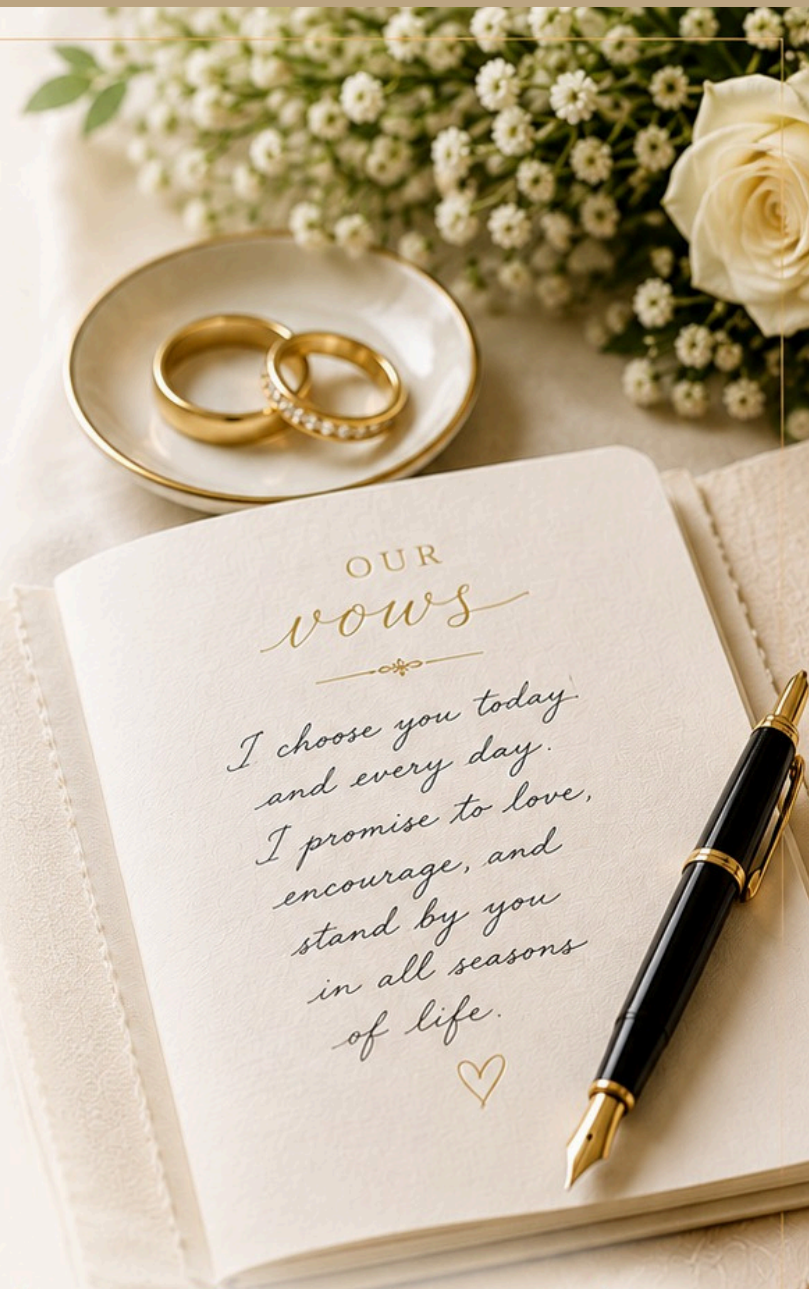 OUR
vows
I choose you today
and every day.
I promise to love,
encourage, and
stand by you
in all seasons
of life.